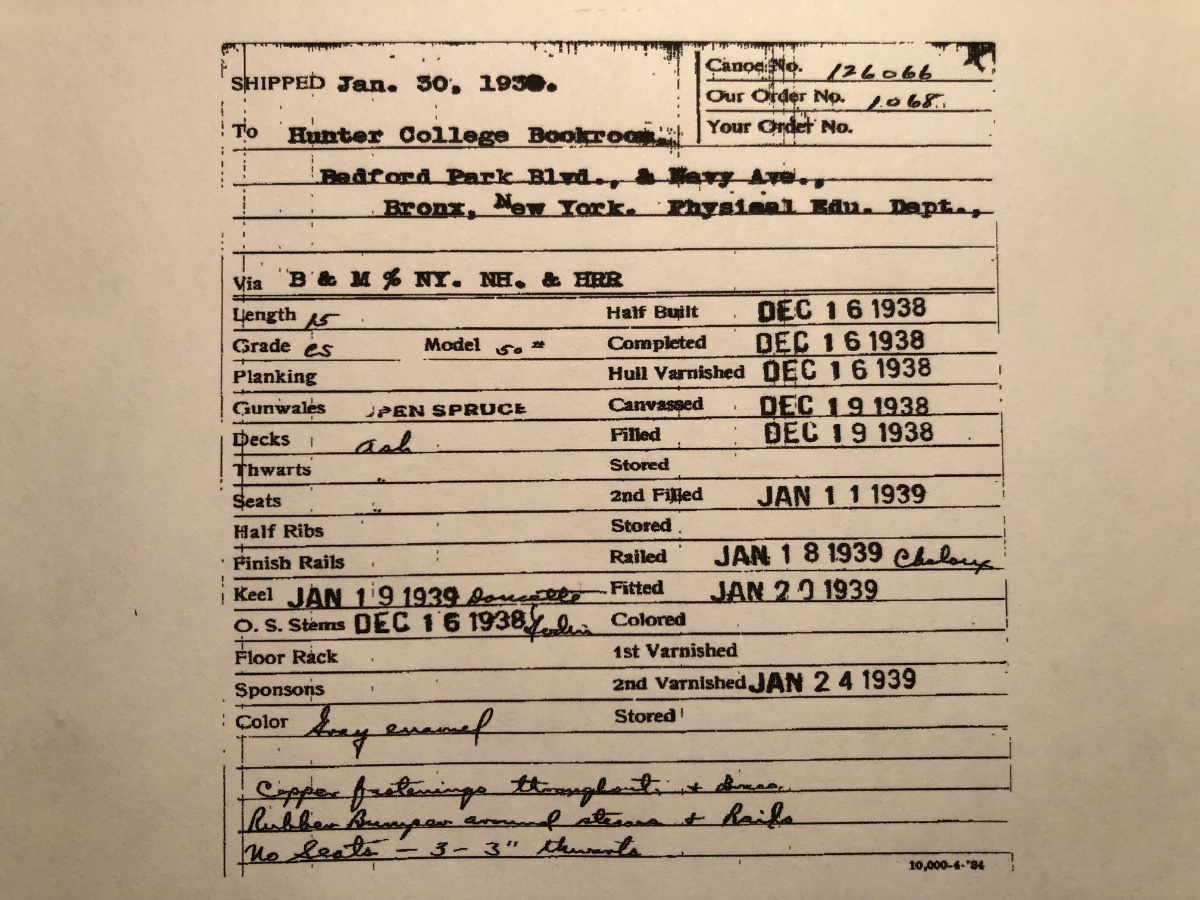 SHIPPED Jan. 30, 193
Canoe No. 126066
Our Order No. 1068
Your Order No.
To Hunter College Bookroom,
Bedford Park Blvd., & Navy Ave.,
Bronx, New York. Physical Edu. Dept.,
Via B & M % NY. NH. & HRR
Length 15 Half Built DEC 16 1938
Grade CS Model 50# Completed DEC 16 1938
Planking Hull Varnished DEC 16 1938
Gunwales PEN SPRUCE Canvassed DEC 19 1938
Decks ash Filled DEC 19 1938
Thwarts " Stored
Seats " 2nd Filled JAN 11 1939
Half Ribs Stored
Finish Rails Railed JAN 18 1939
Keel JAN 19 1939 Doucette Fitted JAN 20 1939
O. S. Stems DEC 16 1938 Colored
Floor Rack 1st Varnished
Sponsons 2nd Varnished JAN 24 1939
Color Gray enamel Stored
Copper fastenings throughout, + brass
Rubber Bumper around stems + Rails
No Seats - 3 - 3" thwarts
10,000-4-'34